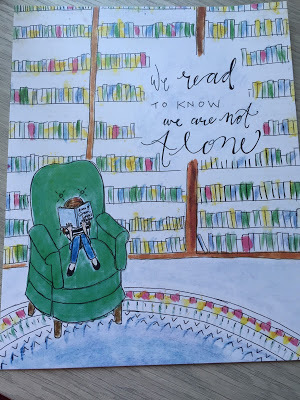 We read
TO KNOW
we are not
Alone